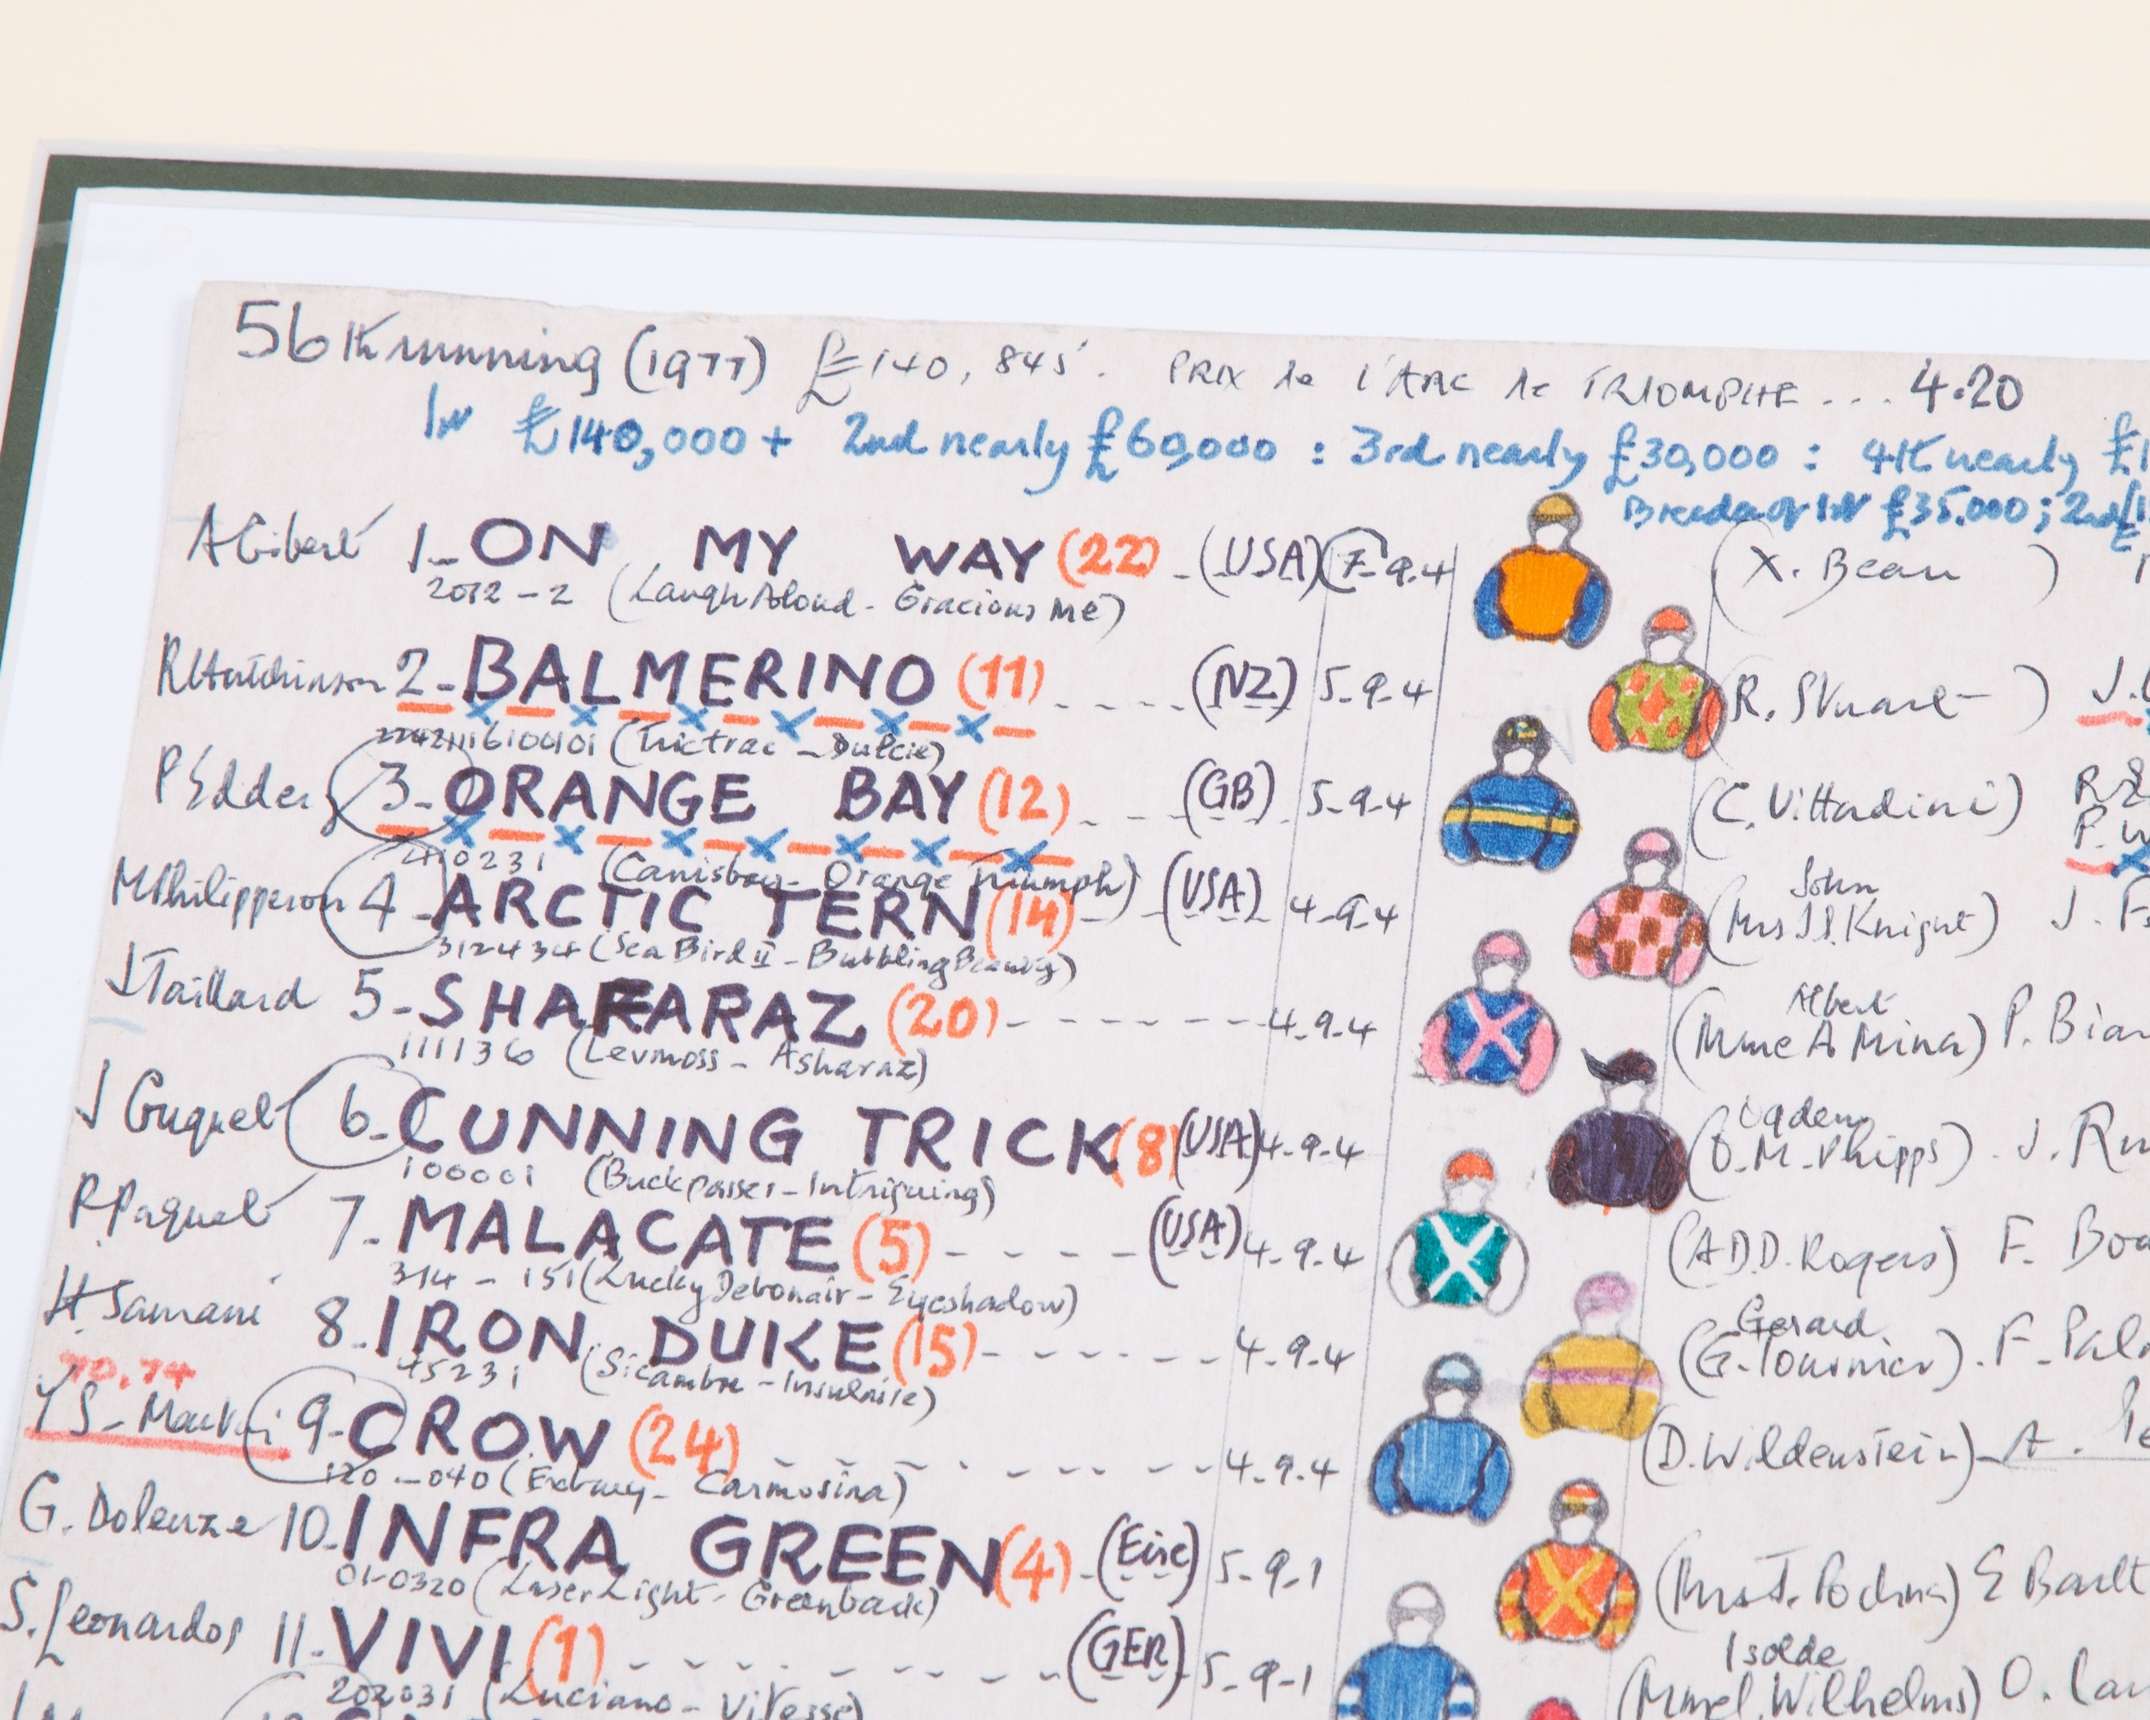 56th running (1977) £140,845. PRIX de l'ARC de TRIOMPHE ... 4.20
1st £140,000 + 2nd nearly £60,000 : 3rd nearly £30,000 : 4th nearly £1
Breeder of 1st £35.000; 2nd
A Gibert 1-ON MY WAY (22) - (USA) 7-9.4 (X. Beau )
2012-2 (Laugh Aloud - Gracious Me)
R Hutchinson 2-BALMERINO (11) ---- (NZ) 5-9-4 (R. Stuart ) J.
(Trictrac - Dulcie)
P Edder 3-ORANGE BAY (12) --- (GB) 5-9-4 (C. Vittadini)
410231 (Canisbay - Orange Triumph)
M Philipperon 4-ARCTIC TERN (14) - (USA) 4-9-4 (Mrs J.Knight) J. F
John
312434 (Sea Bird II - Bubbling Beauty)
J Taillard 5-SHAFARAZ (20) ------ 4-9-4 (Mme A Mina) P. Bia
Albert
111136 (Levmoss - Asharaz)
6-CUNNING TRICK (8) (USA) 4-9-4 (O.M.Phipps) - J. Ru
Ogden
100001 (Buckpasser - Intriguing)
P.Paquet 7-MALACATE (5) ---- (USA) 4-9-4 (A.D.D. Rogers) F. Bou
314-151 (Lucky Debonair - Eyeshadow)
H.Samani 8-IRON DUKE (15) ------ 4-9-4 (G.Tournier). F. Pal
Gerard
45231 (Sicambre - Insulaire)
70.74
Y S- 9-CROW (24) ------ 4-9-4 (D.Wildenstein) - A. Pe
120-040 (Exbury - Carmosina)
G. Doleuze 10-INFRA GREEN (4) - (Eire) 5-9-1 E Bart
01-0320 (Laser Light - Greenback)
S. Leonardos 11-VIVI (1) ------ (GER) 5-9-1 (Mme I.Wilhelms) O. Lan
Isolde
202031 (Luciano - Vitesse)